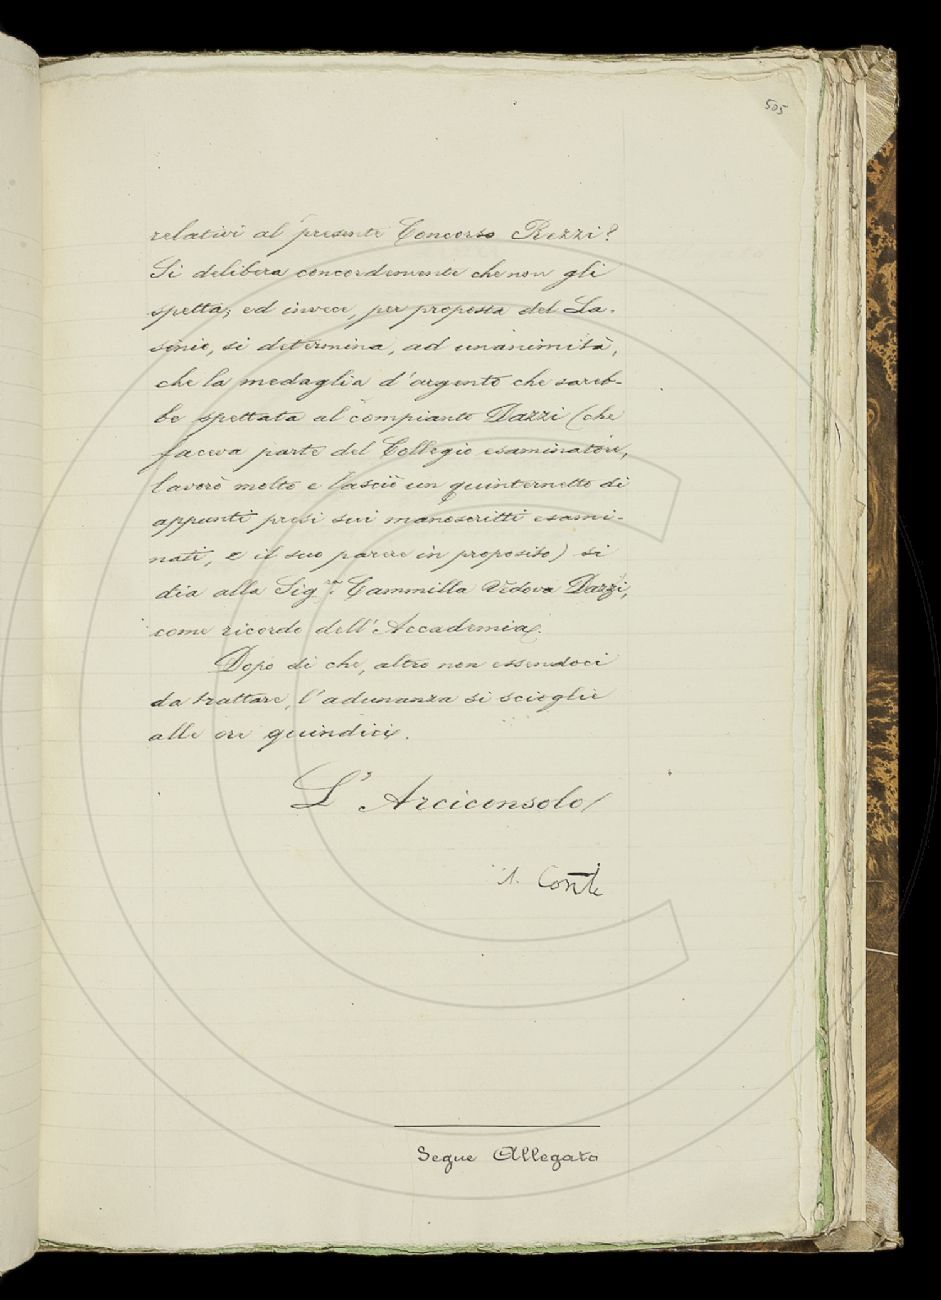 505
relativi al presente Concorso Rezzi?
Si delibera concordemente che non gli
spetta; ed invece, per proposta del La-
sinio, si determina, ad unanimità,
che la medaglia d'argento che sareb-
be spettata al compianto Dazzi (che
faceva parte del Collegio esaminatore,
lavorò molto e lasciò un quinternetto di
appunti presi sui manoscritti esami-
nati, e il suo parere in proposito) si
dia alla Sig.ra Cammilla Vedova Dazzi,
come ricordo dell'Accademia.
Dopo di che, altro non essendoci
da trattare, l'adunanza si scioglie
alle ore quindici.
L'Arciconsolo
A. Conti
Segue Allegato